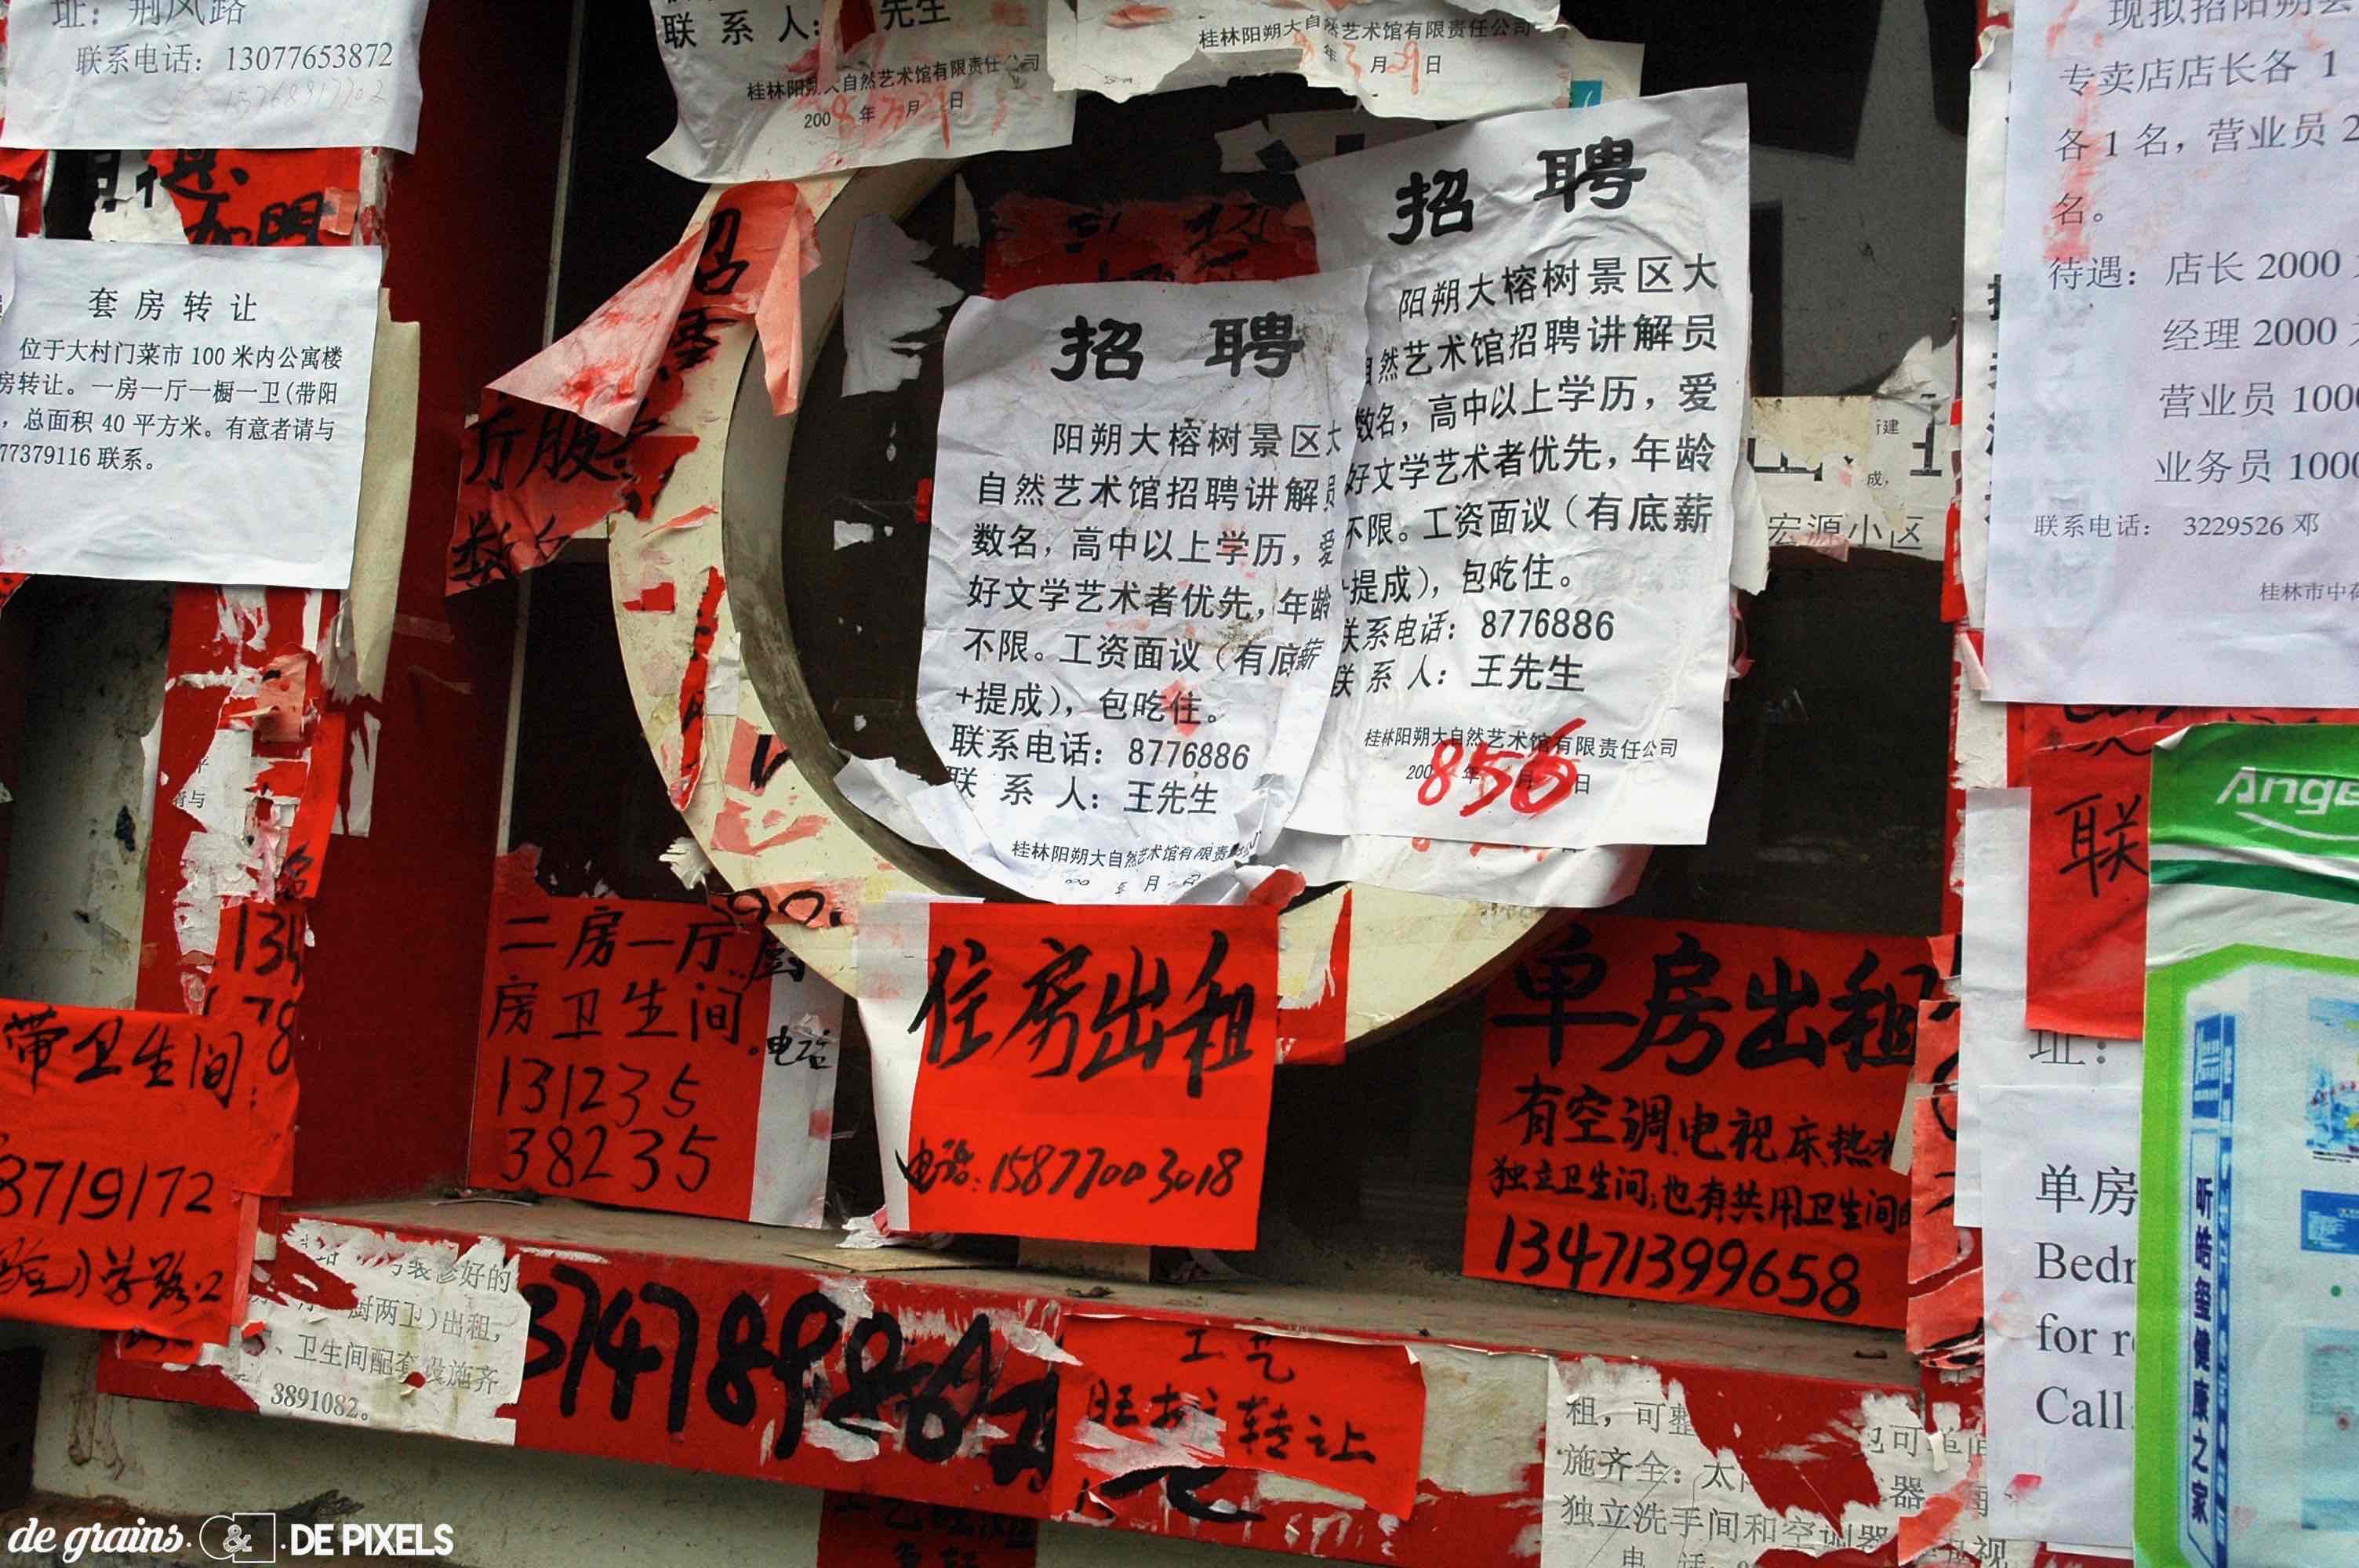 址：荆凤路
联系电话：13077653872
加盟
套 房 转 让
位于大村门菜市 100 米内公寓楼
房转让。一房一厅一橱一卫(带阳
，总面积 40 平方米。有意者请与
77379116 联系。
联 系 人： 先生
桂林阳朔大自然艺术馆有限责任公司
200 年 月 日
桂林阳朔大自然艺术馆有限责任公司
年 月 29 日
招
数名
招 聘
阳朔大榕树景区大
自然艺术馆招聘讲解员
数名，高中以上学历，爱
好文学艺术者优先，年龄
不限。工资面议（有底薪
+提成），包吃住。
联系电话：8776886
联 系 人：王先生
桂林阳朔大自然艺术馆有限责
月 日
招 聘
阳朔大榕树景区大
自然艺术馆招聘讲解员
数名，高中以上学历，爱
好文学艺术者优先，年龄
不限。工资面议（有底薪
+提成），包吃住。
联系电话：8776886
联 系 人：王先生
桂林阳朔大自然艺术馆有限责任公司
200 年 月 日
856
新建
成，
宏源小区
现拟招阳朔县
专卖店店长各 1
各 1 名，营业员 2
名。
待遇：店长 2000
经理 2000
营业员 1000
业务员 1000
联系电话： 3229526 邓
桂林市中
联
Ange
昕皓玺健康之家
址：
单房
Bedr
for r
Call:
134
78
带卫生间
8719172
学路口
二房一厅.厨
房卫生间.电话
131235
38235
住房出租
电话:15877003018
单房出租
有空调.电视.床.热水
独立卫生间;也有共用卫生间
13471399658
装修好的
厨两卫）出租，
、卫生间配套设施齐
3891082。
工艺
旺 转让
租，可整
施齐全：太
独立洗手间和空调器
电 话：
de grains & DE PIXELS